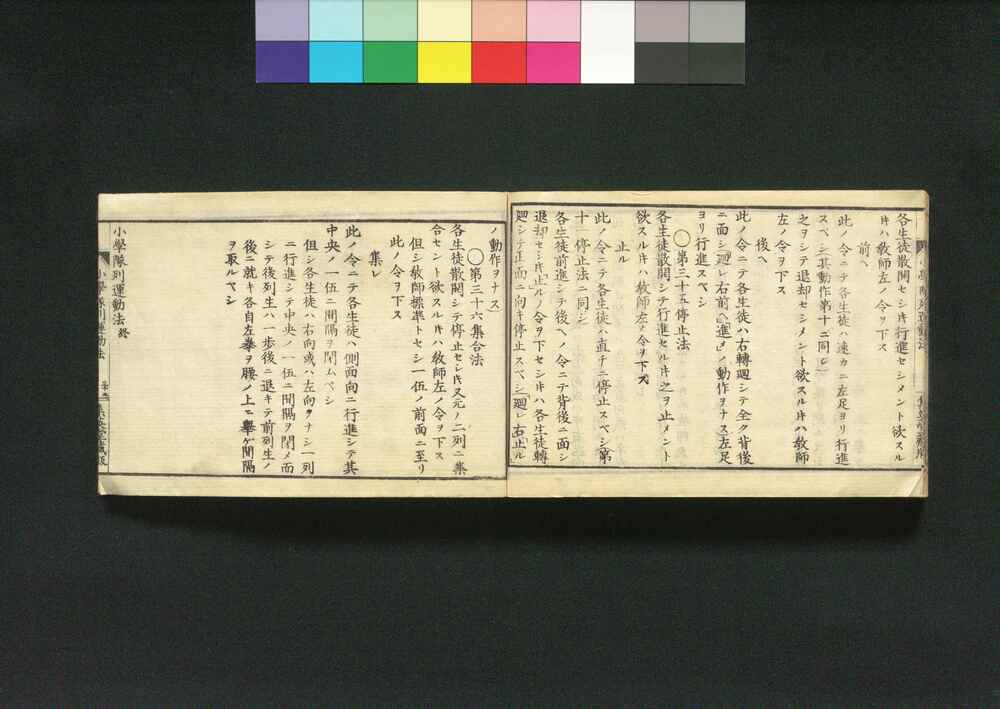 各生徒散開セシ𪜈行進セシメント欲スル
𪜈ハ教師左ノ令ヲ下ス
前ヘ
此ノ令ニテ各生徒ハ速カニ左足ヨリ行進
スベシ(其動作第十二同シ)
之ヲシテ退却セシメント欲スル𪜈ハ教師
左ノ令ヲ下ス
後ヘ
此ノ令ニテ各生徒ハ右轉廻シテ全ク背後
ニ面シ「廻レ右前ヘ進メ」ノ動作ヲナス左足
ヨリ行進スベシ
○第三十五停止法
各生徒散開シテ行進セル𪜈之ヲ止メント
欲スル𪜈ハ教師左ノ令ヲ下ス
止ル
此ノ令ニテ各生徒ハ直チニ停止スベシ第
十一停止法ニ同シ
各生徒前進シテ後ヘノ令ニテ背後ニ面シ
退却セシ𪜈止ルノ令ヲ下セシ𪜈ハ各生徒轉
廻シテ正面ニ向キ停止スベシ「廻レ右」「止ル
ノ動作ヲナス
○第三十六集合法
各生徒散開シテ停止セシ𪜈又元ノ二列ニ集
合セント欲スル𪜈ハ教師左ノ令ヲ下ス
但シ教師標準トセシ一伍ノ前面ニ至リ
此ノ令ヲ下ス
集レ
此ノ令ニテ各生徒ハ側面向ニ行進シテ其
中央ノ一伍ニ間隔ヲ閉ムベシ
但シ各生徒ハ右向或ハ左向ヲナシ一列
ニ行進シテ中央ノ一伍ニ間隔ヲ閉メ而
シテ後列生ハ一歩後ニ退キテ前列生ノ
後ニ就キ各自左拳ヲ腰ノ上ニ擧ゲ間隔
ヲ取ルベシ
小學隊列運動法終
小學隊列運動法